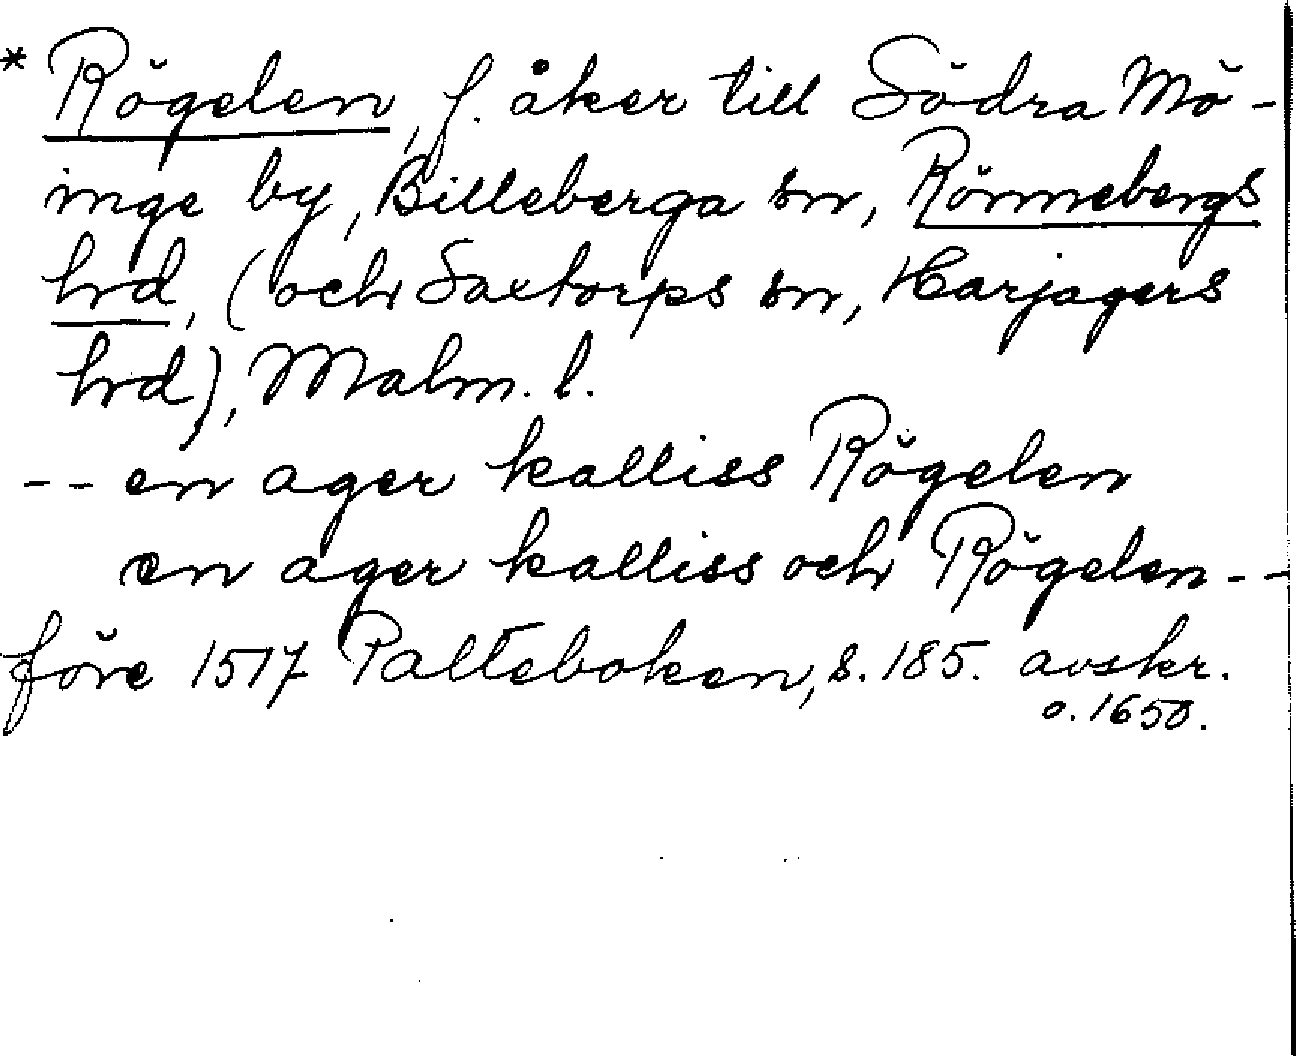 * Rögelen, f. åker till Södra Mö-
inge by, Billeberga sn, Rönnebergs
hrd, (och Saxtorps sn, Harjagers
hrd), Malm. l.
-- en ager kalliss Rögelen
en ager kalliss och Rögelen --
före 1517 Palteboken, s. 185. avskr.
o. 1650.